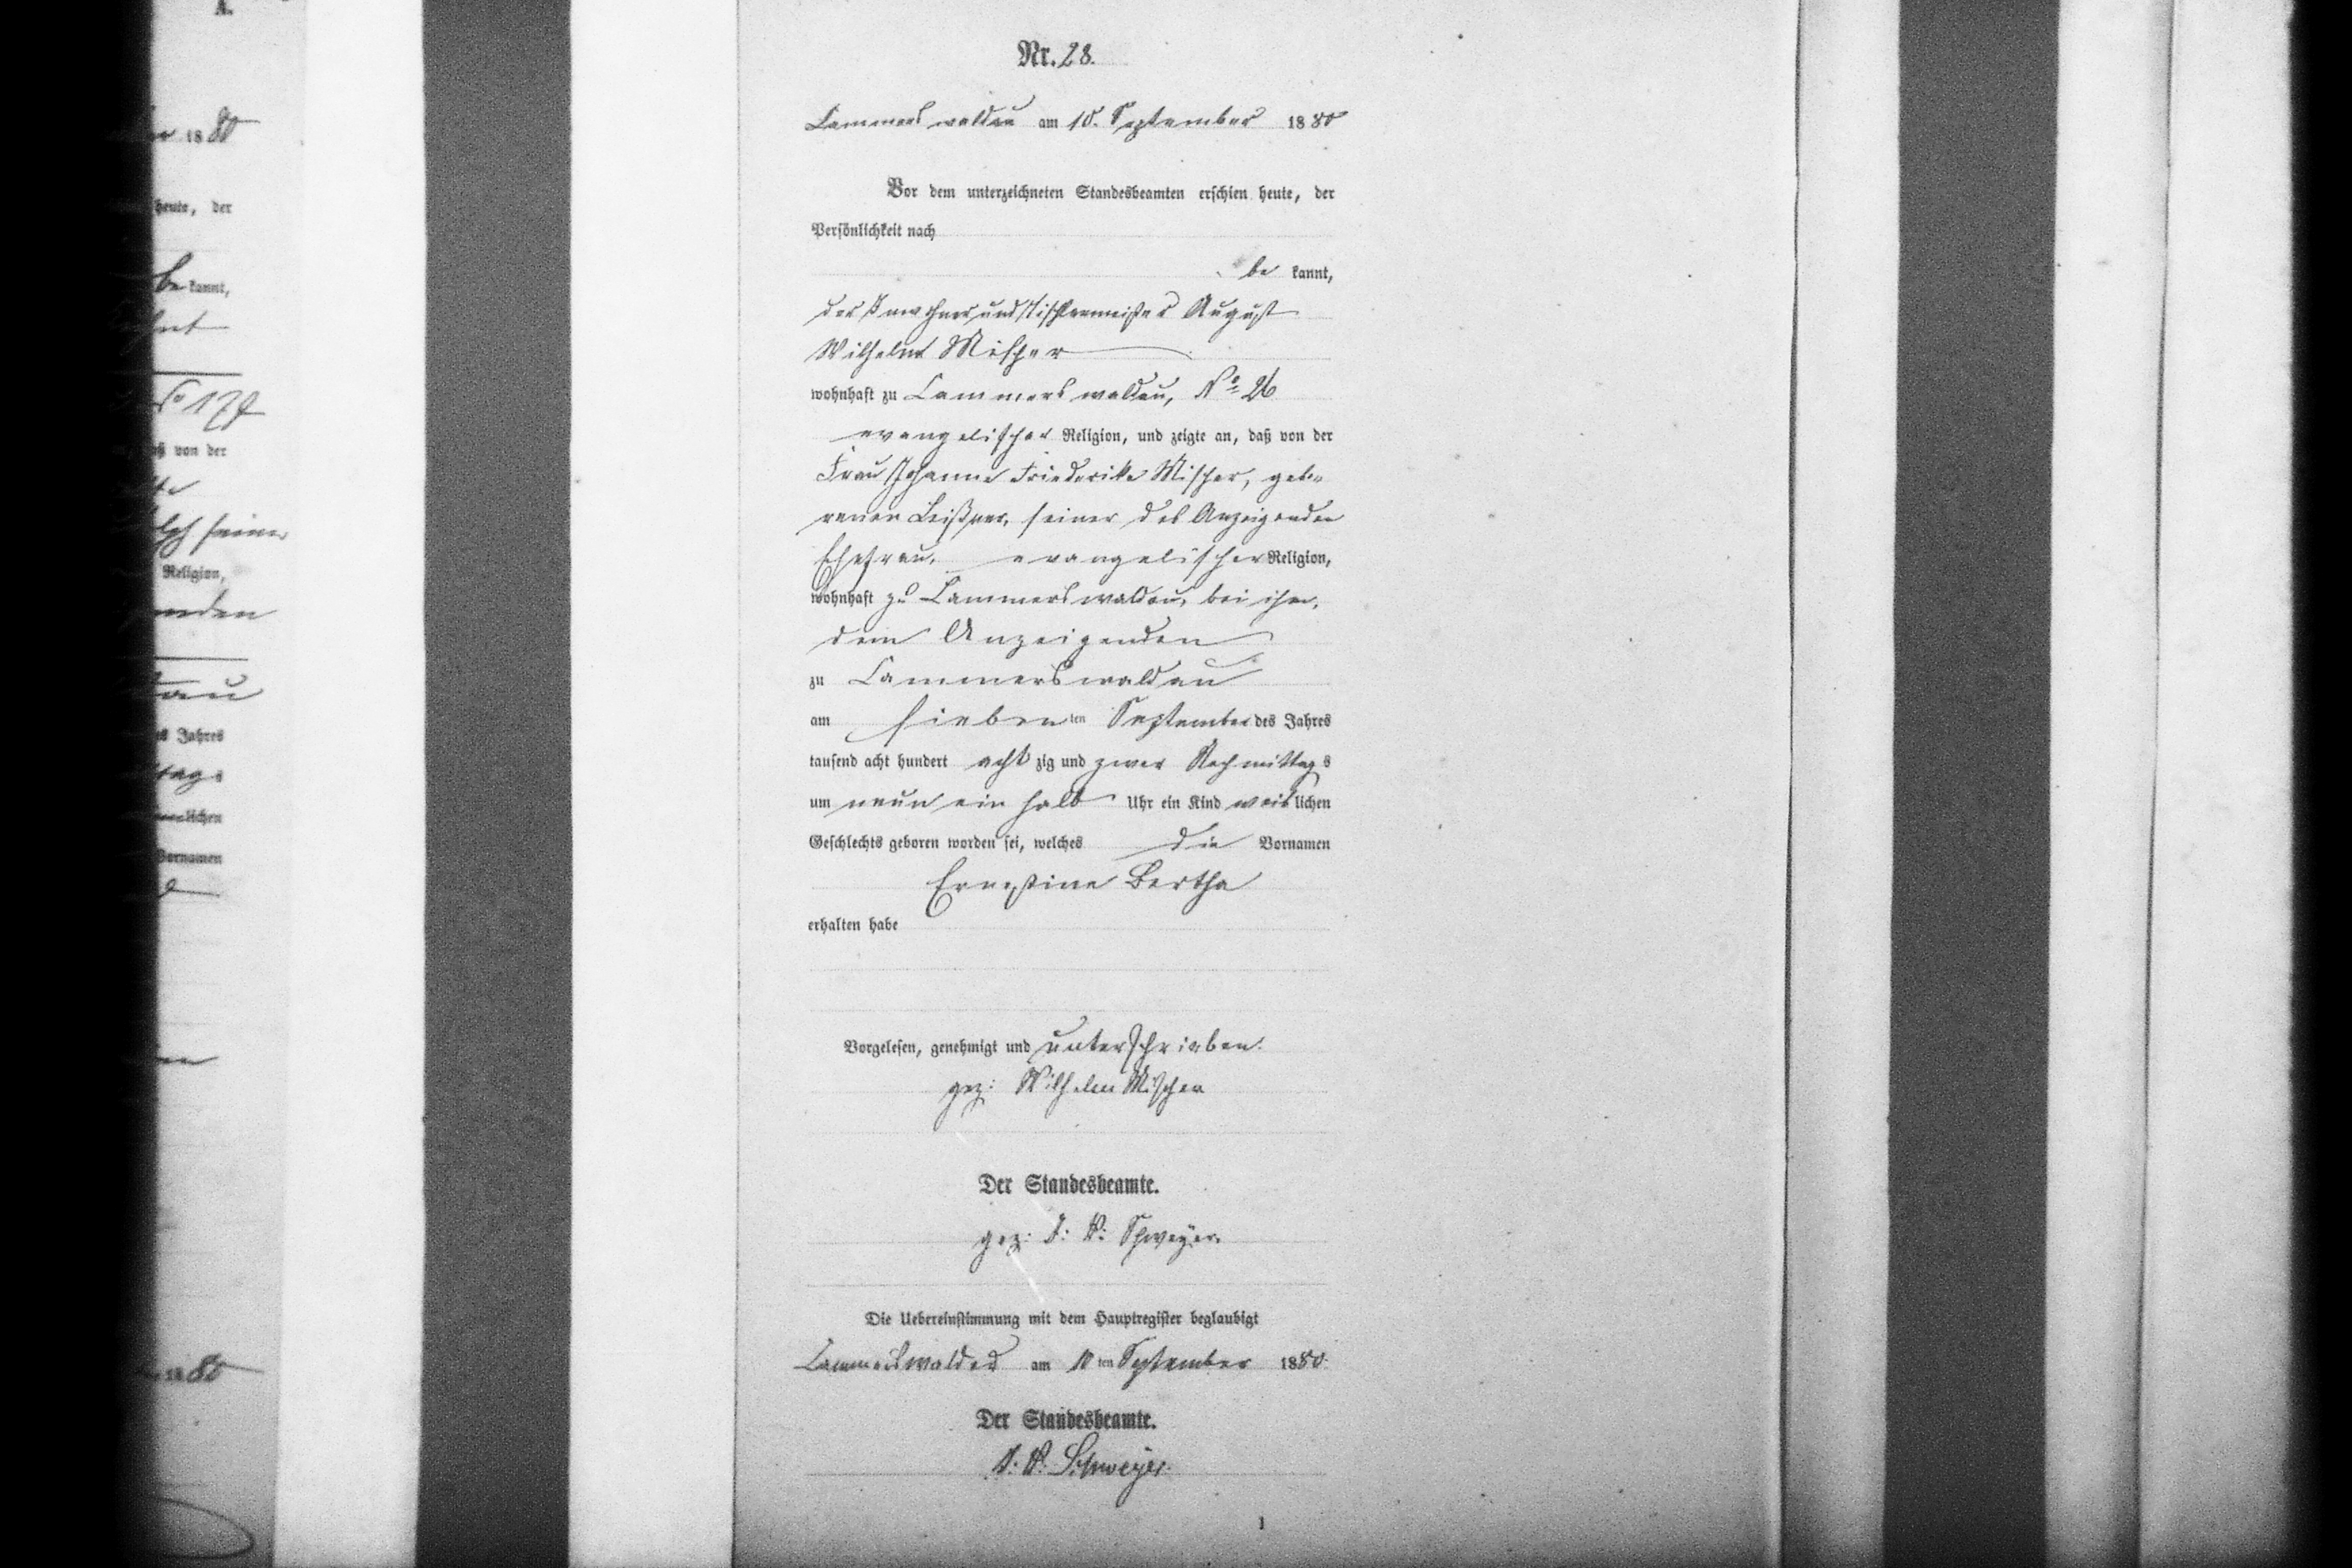 A.
Nr. 28.
Cammerswaldau am 10. September 1880
Vor dem unterzeichneten Standesbeamten erschien heute, der
Persönlichkeit nach
be kannt,
der Inwohner und Tischlermeister August
Wilhelm Mischer
wohnhaft zu Cammerswaldau, No 26
evangelischer Religion, und zeigte an, daß von der
Frau Johanne Friederike Mischer, gebo-
renen seiner des Anzeigenden
Ehefrau, evangelischer Religion,
wohnhaft zu Cammerswaldau, bei ihm,
dem Anzeigenden
zu Cammerswaldau
am sieben ten September des Jahres
tausend acht hundert acht zig und zwar Nachmittags
um neun ein halb Uhr ein Kind weib lichen
Geschlechts geboren worden sei, welches die Vornamen
Ernestine Bertha
erhalten habe
Vorgelesen, genehmigt und unterschrieben.
gez: Wilhelm Mischer
Der Standesbeamte.
gez: I. V. Schweyer.
Die Uebereinstimmung mit dem Hauptregister beglaubigt
Cammerswaldau am 10 ten September 1880
Der Standesbeamte.
I. V. Schweyer.
1